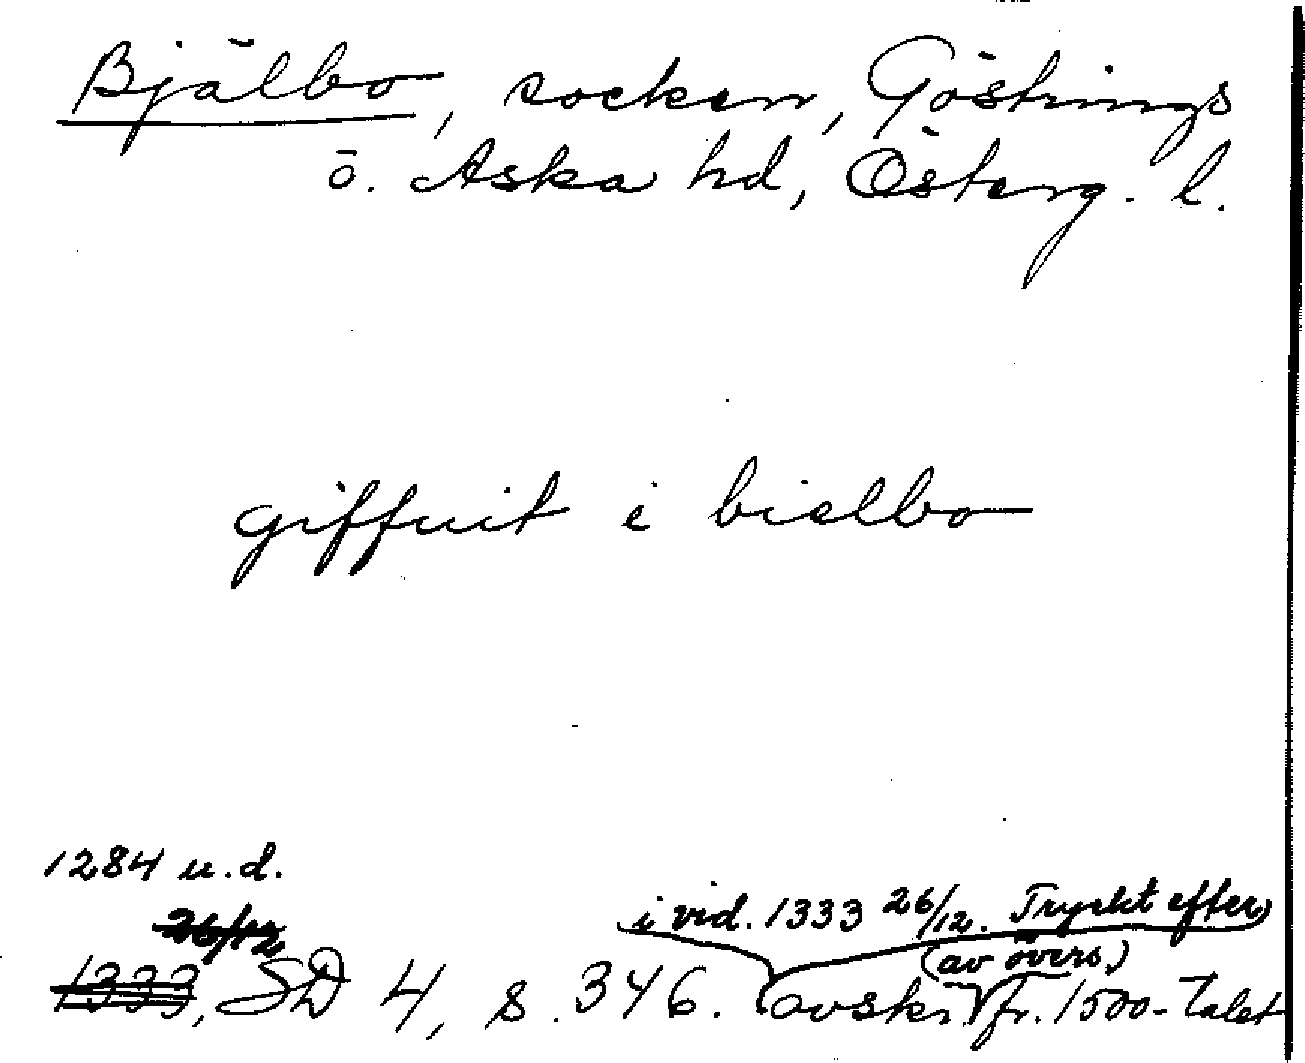 Bjälbo, socken, Göstrings
o. Aska hd, Österg. l.
giffuit i bielbo
1284 u.d.
26/12
i vid. 1333 26/12. Tryckt efter
(av övers.)
1333, SD 4, s. 346. avskr. fr. 1500-talet